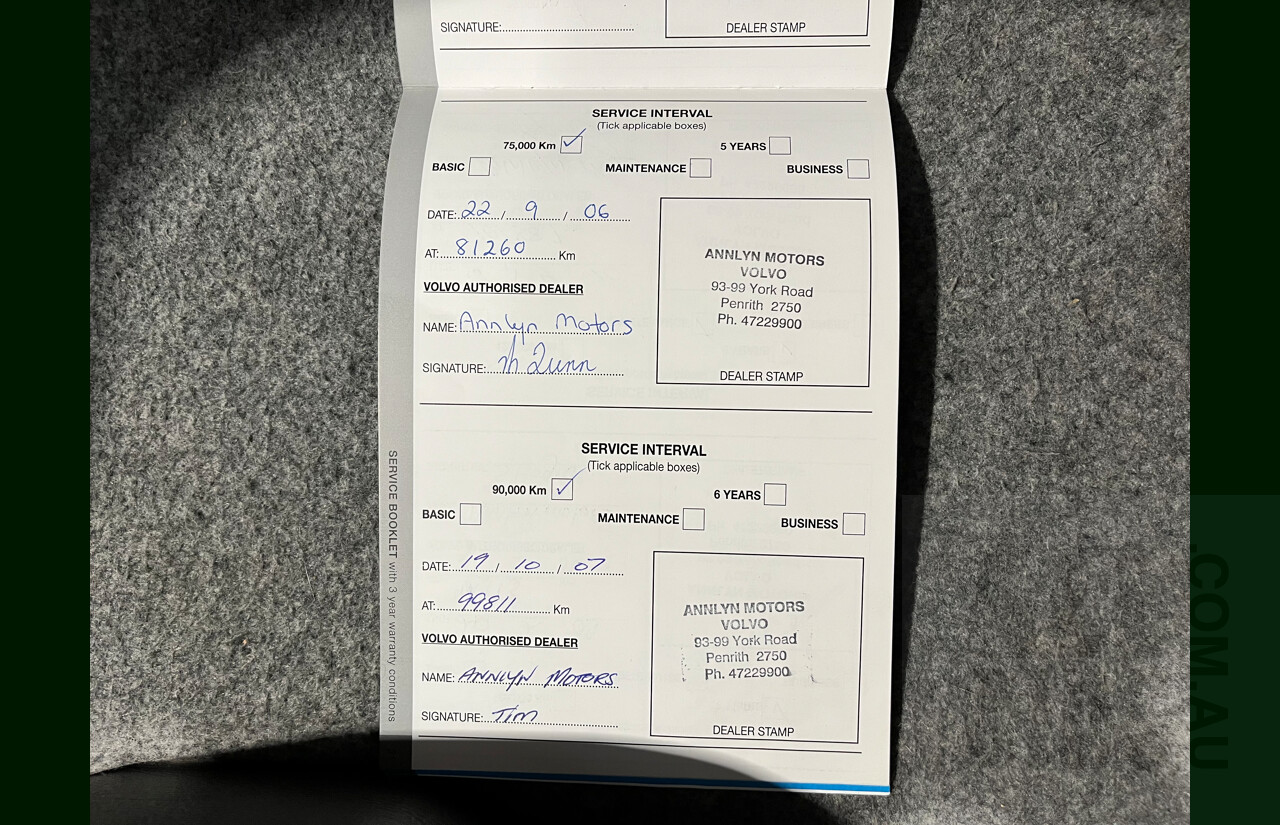 SIGNATURE:
DEALER STAMP
SERVICE INTERVAL
(Tick applicable boxes)
75,000 Km 5 YEARS
BASIC MAINTENANCE BUSINESS
DATE: 22 / 9 / 06
AT: 81260 Km
VOLVO AUTHORISED DEALER
NAME: Annlyn Motors
SIGNATURE: M Dunn
ANNLYN MOTORS
VOLVO
93-99 York Road
Penrith 2750
Ph. 47229900
DEALER STAMP
SERVICE INTERVAL
(Tick applicable boxes)
90,000 Km 6 YEARS
BASIC MAINTENANCE BUSINESS
DATE: 19 / 10 / 07
AT: 99811 Km
VOLVO AUTHORISED DEALER
NAME: ANNLYN MOTORS
SIGNATURE: Tim
ANNLYN MOTORS
VOLVO
93-99 York Road
Penrith 2750
Ph. 47229900
DEALER STAMP
SERVICE BOOKLET with 3 year warranty conditions
.COM.AU